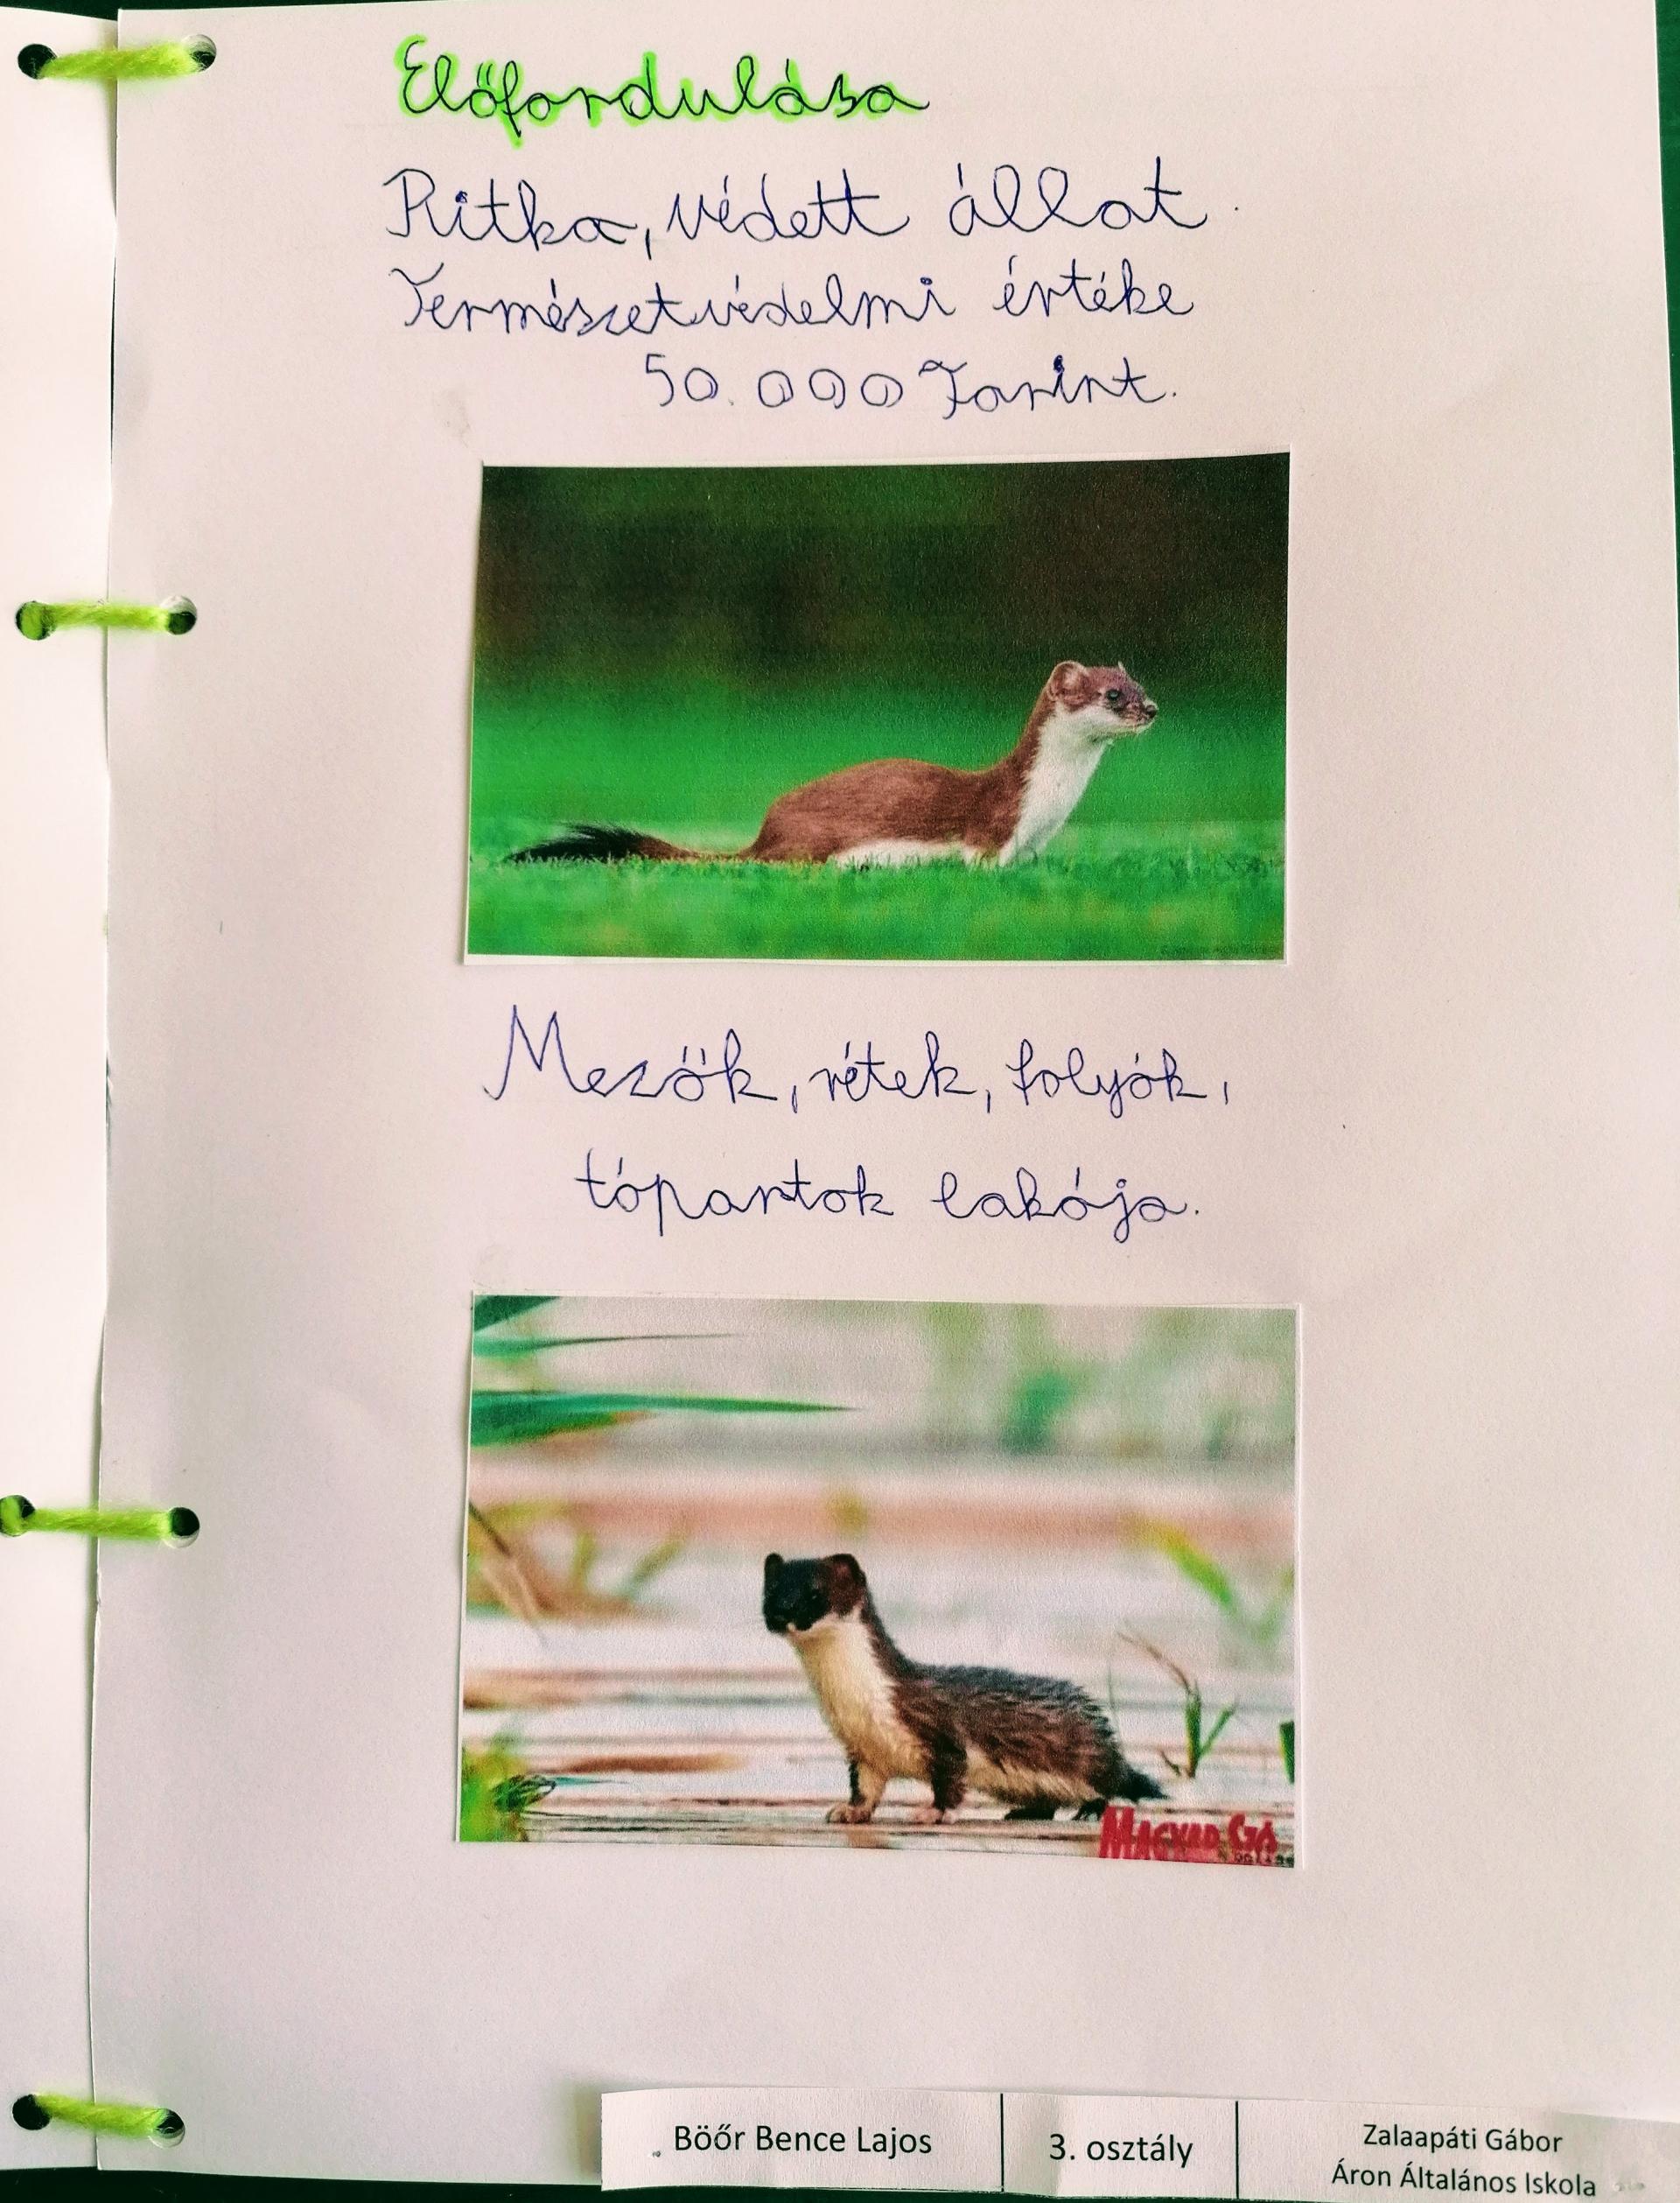 Előfordulása
Ritka, védett állat.
Természetvédelmi értéke
50.000 Forint.
Mezők, rétek, folyók,
tópartok lakója.
Magyar Szó
Böőr Bence Lajos
3. osztály
Zalaapáti Gábor
Áron Általános Iskola